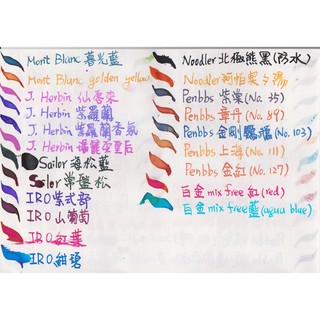 Mont Blanc 暮光藍
Mont Blanc golden yellow
J. Herbin 仙客來
J. Herbin 紫羅蘭
J. Herbin 紫羅蘭香氛
J. Herbin 瑪麗亞皇后
Sailor 海松藍
Sailor 常盤松
IRO 紫式部
IRO 山葡萄
IRO 紅葉
IRO 紺碧
Noodler 北極熊黑(防水)
Noodler 阿帕契夕陽
Penbbs 紫棠(No. 35)
Penbbs 章丹(No. 89)
Penbbs 金剛鸚鵡(No. 103)
Penbbs 上海(No. 111)
Penbbs 金紅(No. 127)
白金 mix free 紅(red)
白金 mix free 藍(aqua blue)